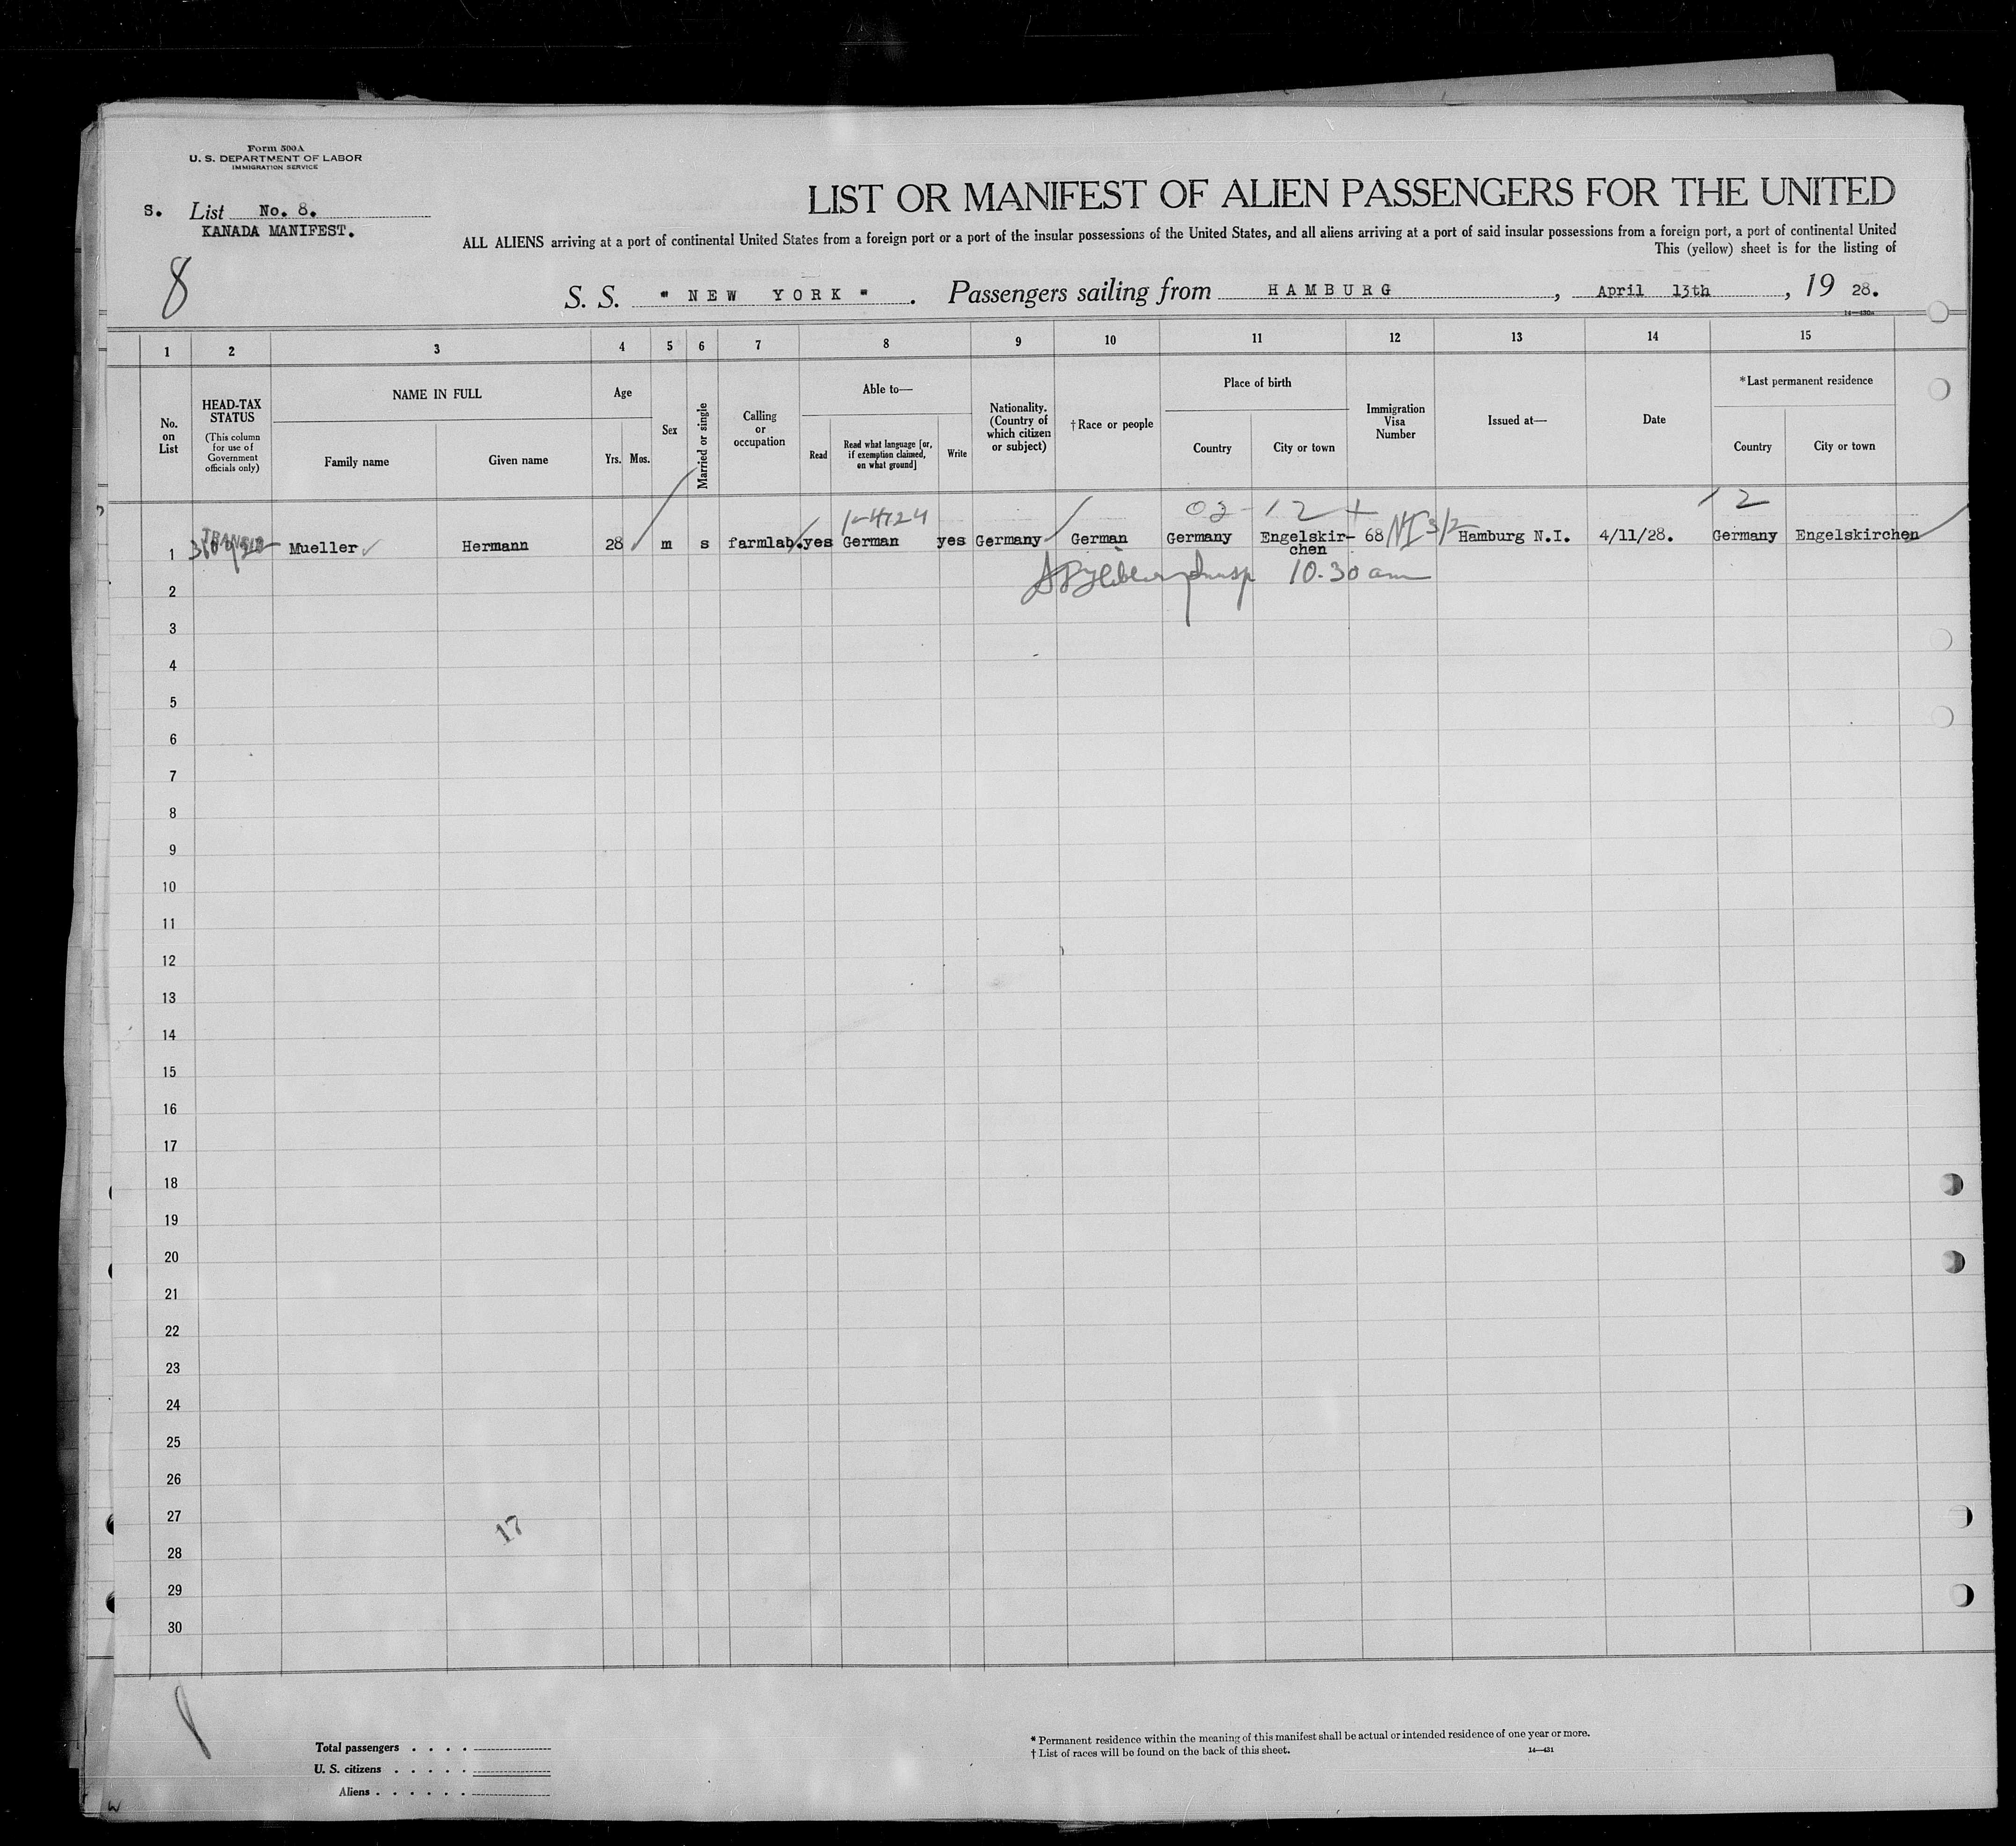 Form 500A
U. S. DEPARTMENT OF LABOR
IMMIGRATION SERVICE
S. List No. 8.
KANADA MANIFEST.
8
LIST OR MANIFEST OF ALIEN PASSENGERS FOR THE UNITED
ALL ALIENS arriving at a port of continental United States from a foreign port or a port of the insular possessions of the United States, and all aliens arriving at a port of said insular possessions from a foreign port, a port of continental United
This (yellow) sheet is for the listing of
S. S. " NEW YORK " . Passengers sailing from HAMBURG , April 13th , 19 28.
14—430a
1 2 3 4 5 6 7 8 9 10 11 12 13 14 15
No. on List
HEAD-TAX STATUS
(This column for use of Government officials only)
NAME IN FULL
Family name
Given name
Age
Yrs. Mos.
Sex
Married or single
Calling or occupation
Able to—
Read
Read what language [or, if exemption claimed, on what ground]
Write
Nationality. (Country of which citizen or subject)
† Race or people
Place of birth
Country
City or town
Immigration Visa Number
Issued at—
Date
*Last permanent residence
Country
City or town
12
1 TRANSIT Mueller Hermann 28 m s farmlab. yes German yes Germany German Germany Engelskir- 68 Hamburg N.I. 4/11/28. Germany Engelskirchen
chen
10.30 am
2
3
4
5
6
7
8
9
10
11
12
13
14
15
16
17
18
19
20
21
22
23
24
25
26
27
17
28
29
30
Total passengers . . . .
U. S. citizens . . . . .
Aliens . . . . . .
* Permanent residence within the meaning of this manifest shall be actual or intended residence of one year or more.
† List of races will be found on the back of this sheet.
14—431
W